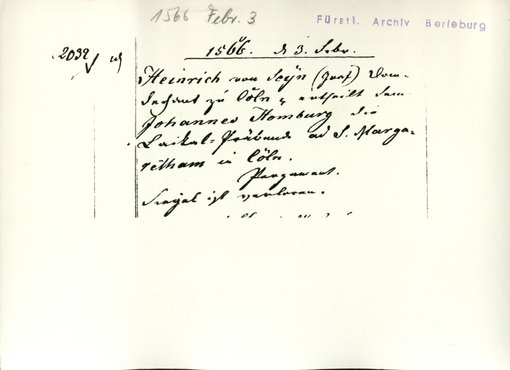 1566 Febr. 3
Fürstl. Archiv Berleburg
2032
1566. d 3. Febr.
Heinrich von Seyn (Graf) Dom-
dechant zu Cöln, ertheilt dem
Johannes Homburg die
Laikal-Präbende ad S. Marga-
retham in Cöln.
Pergament.
Siegel ist verloren.